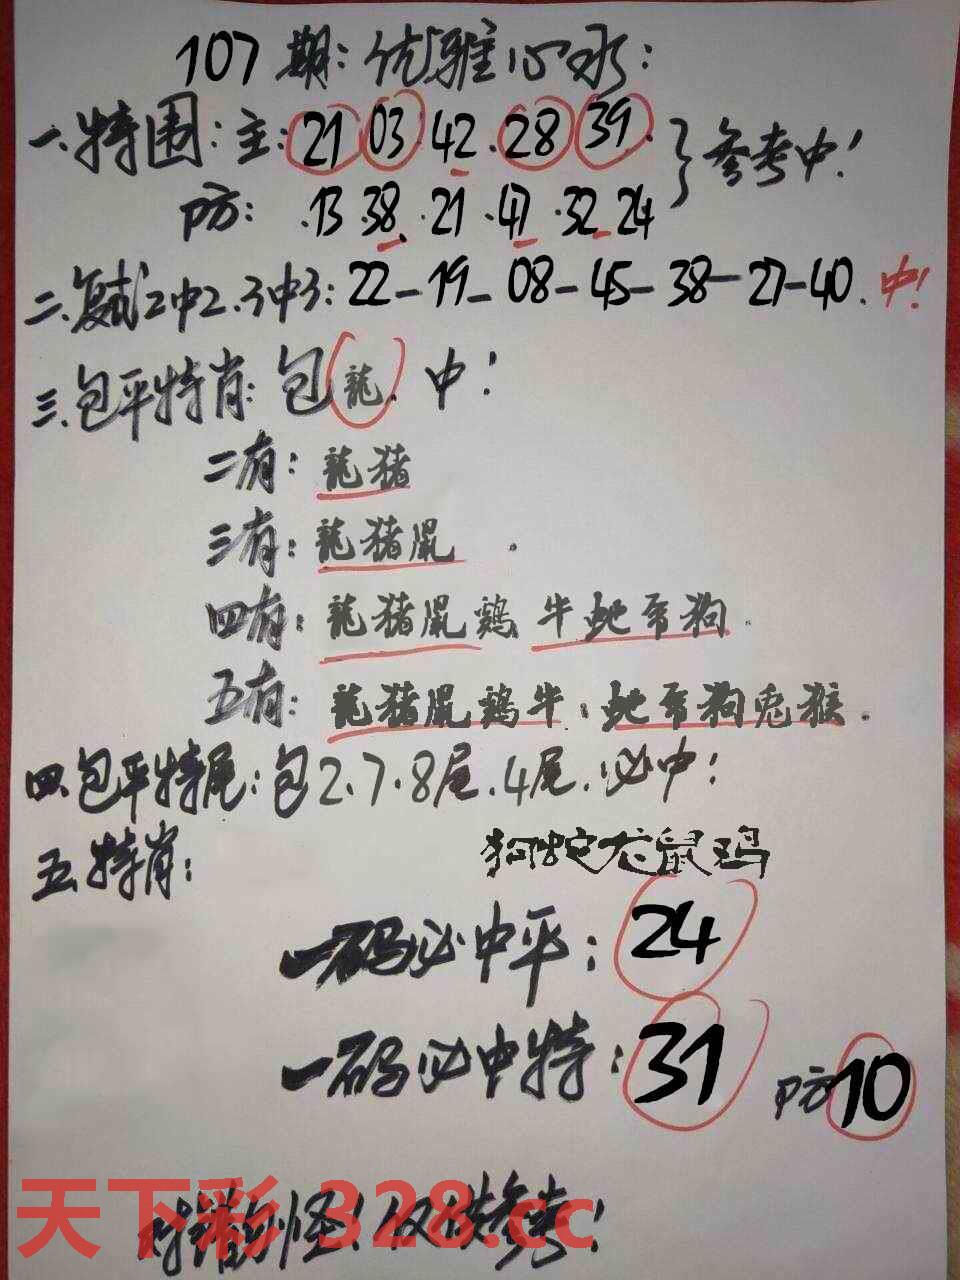 107期:优雅心水:
一.特围:主:21 03 42 28 39. 参考中!
防:.13 38.21.47.32 24
二.复式2中2.3中3:22-19-08-45-38-27-40.中!
三.包平特肖:包龍.中!
二有:龍猪
三有:龍猪鼠.
四有:龍猪鼠鷄 牛蛇马狗.
五有:龍猪鼠鷄牛:蛇马狗兎猴.
四.包平特尾:包2.7.8尾.4尾.必中!
五.特肖:
狗蛇龙鼠鸡
一码必中平:24
一码必中特:31 防10
错勿怪!仅供参考!
天下彩 328.cc